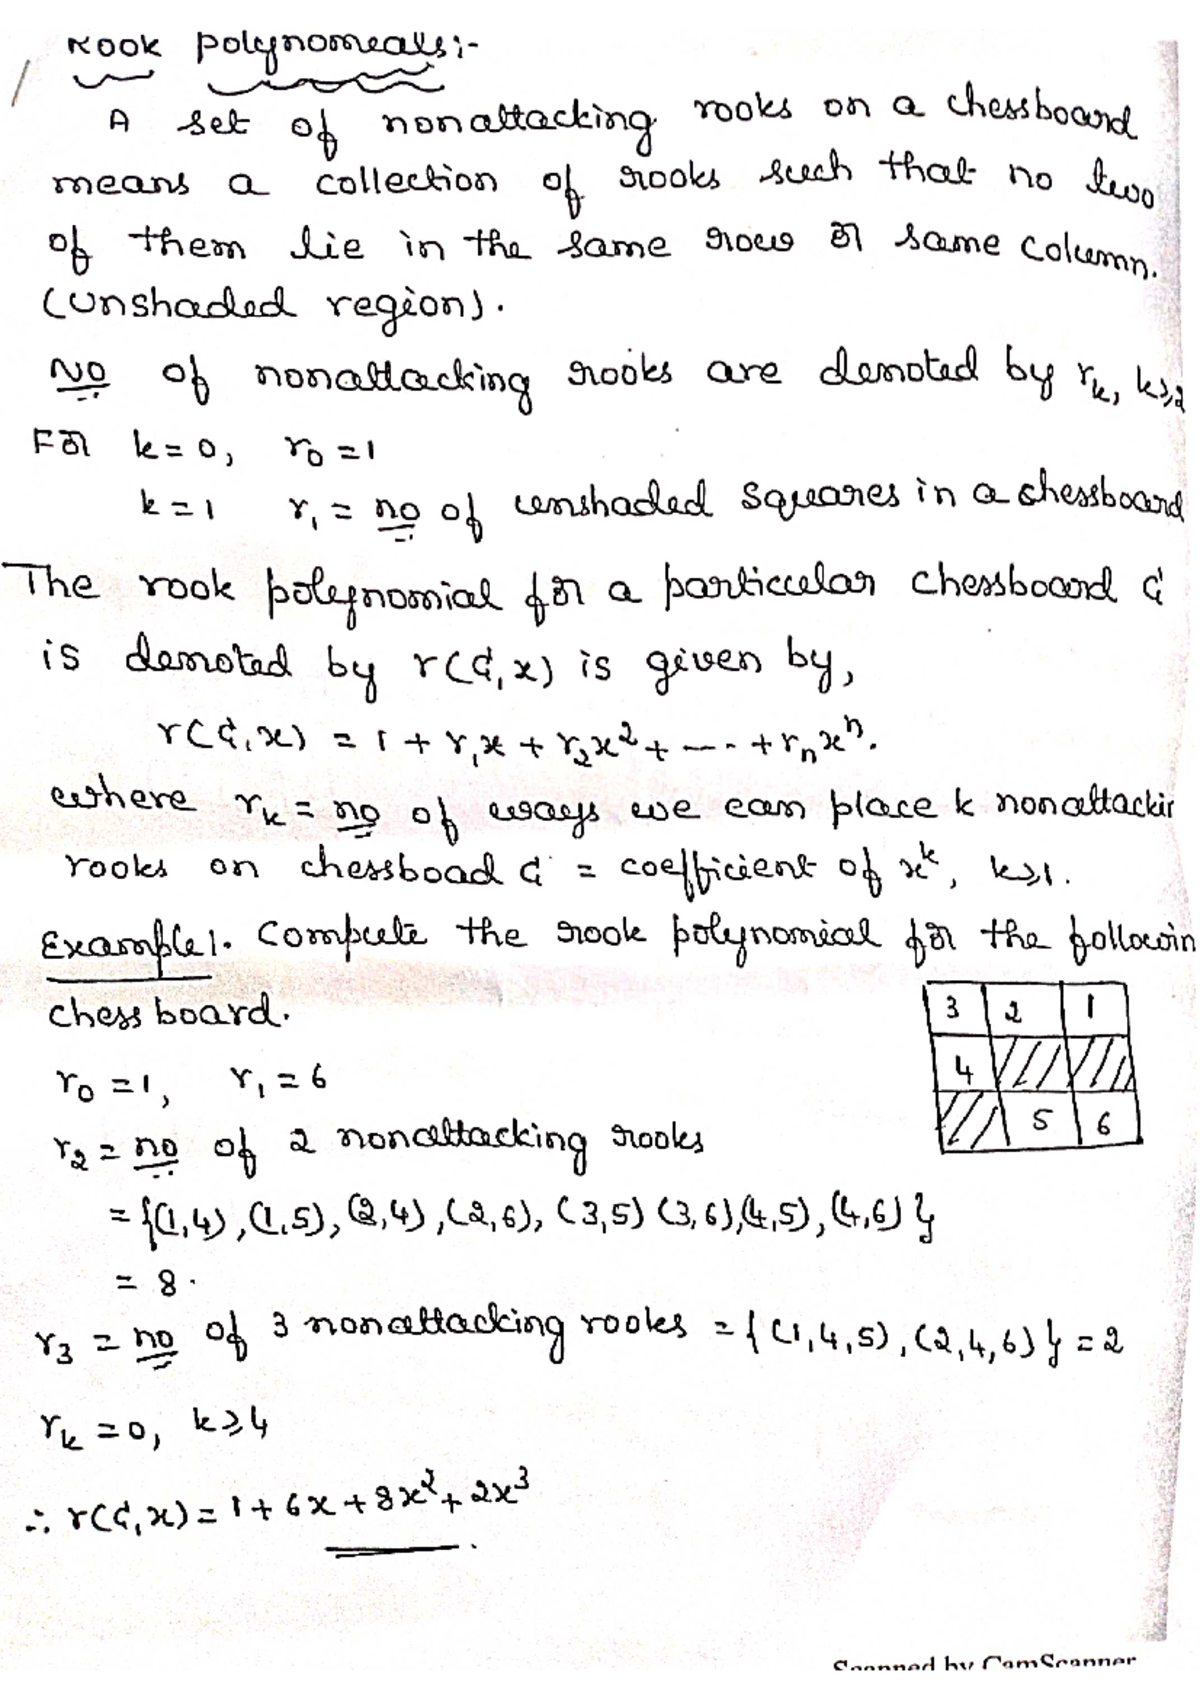 Rook polynomeals:-
A set of nonattacking rooks on a chessboard
means a collection of rooks such that no two
of them lie in the same row or same column.
(unshaded region).
No of nonattacking rooks are denoted by r_k, k≥2
For k=0, r_0=1
k=1 r_1 = no of unshaded squares in a chessboard
The rook polynomial for a particular chessboard C
is denoted by r(C,x) is given by,
r(C,x) = 1 + r_1x + r_2x^2 + --- + r_nx^n.
where r_k = no of ways we can place k nonattackin
rooks on chessboad C = coefficient of x^k, k≥1.
Example 1. Compute the rook polynomial for the followin
chess board.
3 2 1
4
5 6
r_0=1, r_1=6
r_2 = no of 2 nonattacking rooks
= {(1,4),(1,5),(2,4),(2,6),(3,5)(3,6),(4,5),(4,6)}
= 8.
r_3 = no of 3 nonattacking rooks = {(1,4,5),(2,4,6)} = 2
r_k = 0, k≥4
∴ r(C,x) = 1 + 6x + 8x^2 + 2x^3
Scanned by CamScanner